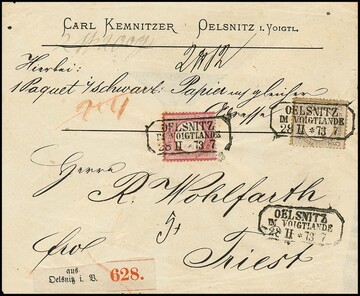 CARL KEMNITZER OELSNITZ I. VOIGTL.
Hierbei:
1 Paquet i/schwarz: Papier m/ gleicher
Adresse
OELSNITZ
IM VOIGTLANDE
28 II *73 7
OELSNITZ
IM VOIGTLANDE
28 II *73 7
Herrn
R. Wohlfarth
OELSNITZ
IM VOIGTLANDE
28 II *73 7
fro!
Triest
aus
Oelsnitz i. V.
628.